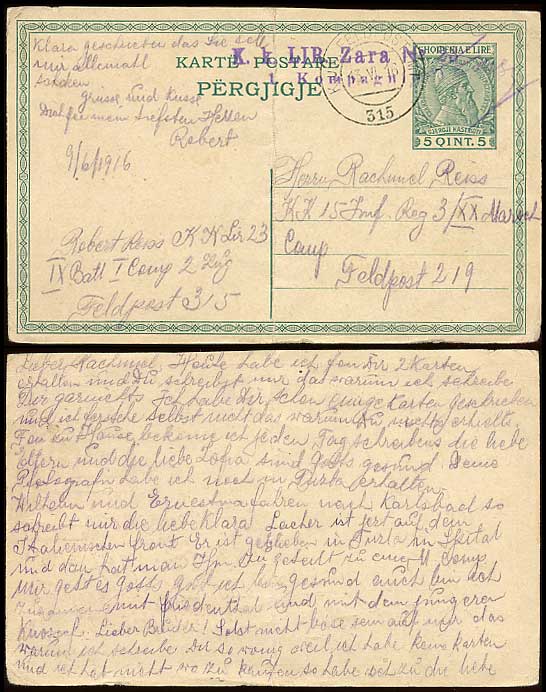 Klara geschrieben das Sie soll
mir allemall
senden
grüsse und Küsse
Robert
9/6/1916
KARTË POSTARE
PËRGJIGJE
K. k. LIR. Zara Nr.
1. Kompagn
315
SHQIPËNIA E LIRË
GJERGJ KASTRIOTI
5 QINT. 5
Herrn Rachmiel Reiss
KK 15 Inf. Reg 3/XX Marsch
Comp
Feldpost 219
Robert Reiss K K Lir 23
IX Batt I Comp 2 Zug
Feldpost 315
Lieber Rachmiel, Heute habe ich fon Dir 2 Karten
erhalten und Du schreibst mir das warum ich schreibe
Dir garnichts Ich habe Dir schon einige Karten geschrieben
und ich ferstehe selbst nicht das warum Du nichts erhielts
Fon zu Hause bekome ich jeden Tag schreibens die liebe
Eltern und die liebe sind Gotts gesund. Deine
habe ich noch in erhalten
Wilhelm und Ernestina fahren nach Karlsbad so
schreibt mir die liebe Klara ist jezt auf dem
Italienischen front Er ist geblieben in
und dan hat man Ihm zu geteilt zu eine M. Comp
Mir geht es Gotts ich bin gesund auch bin ich
zusammen mit Friedenthal und mit dem jungeren
Lieber Bruder! Solst nicht böse sein auf mir das
warum ich schreibe Dir so wenig weil ich habe keine Karten
und ich hat nicht wo zu kaufen so habe ich zu die liebe